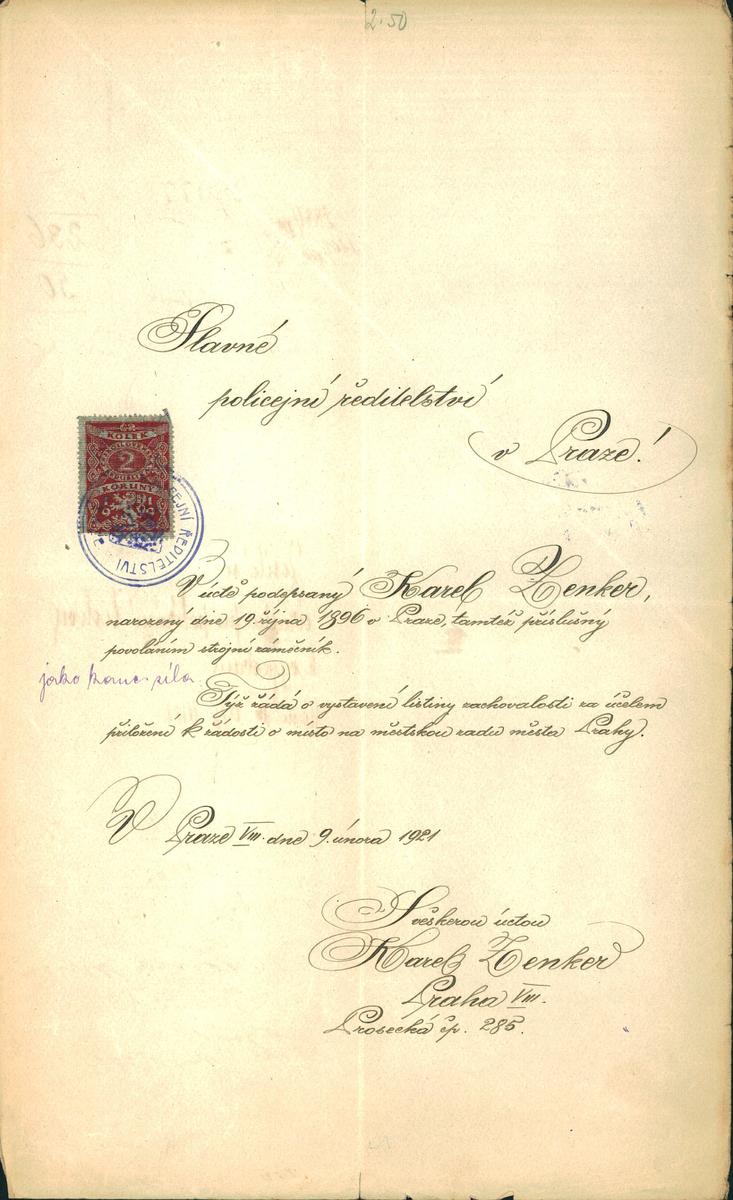 2.50
Slavné
policejní ředitelství
v Praze!
KOLEK
2
KORUNY
V úctě podepsaný Karel Zenker,
narozený dne 19. října 1896 v Praze, tamtéž příslušný
povoláním strojní zámečník.
jako kanc. síla
Týž žádá o vystavení listiny zachovalosti za účelem
přiložení k žádosti o místo na městskou radu města Prahy.
V Praze VIII. dne 9. února 1921
S veškerou úctou
Karel Zenker
Praha VIII.
Prosecká čp. 285.